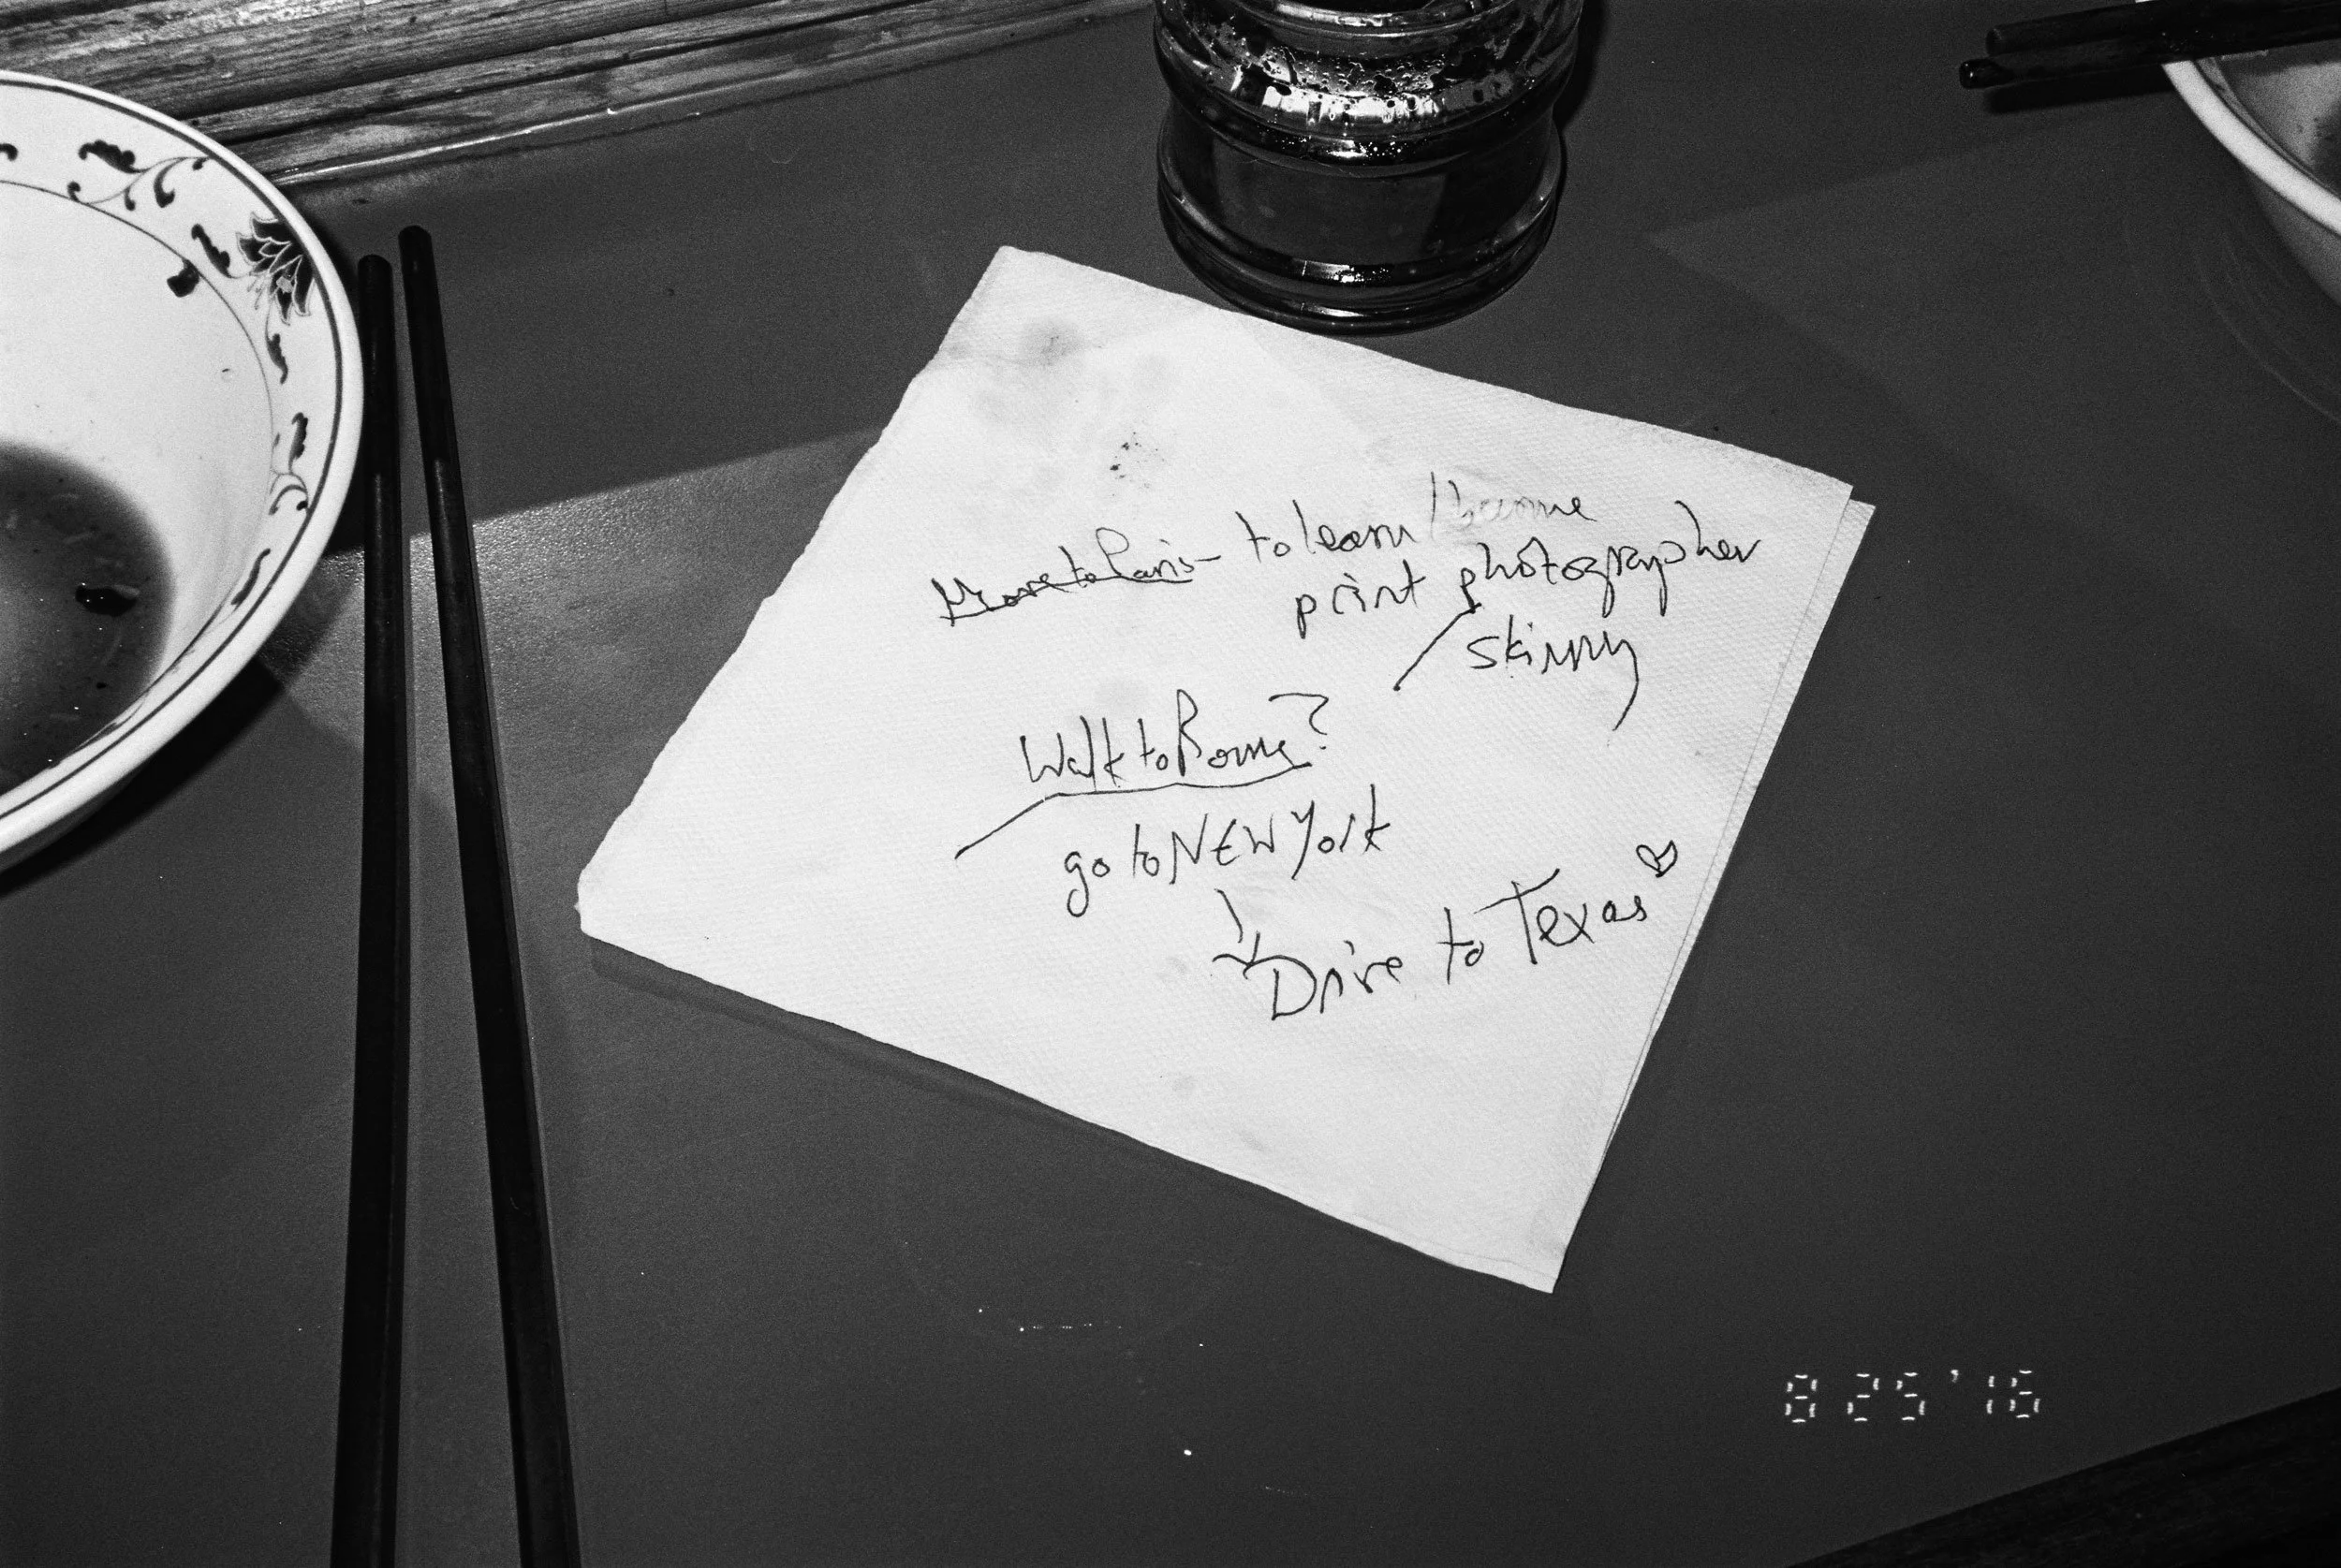 Move to Paris - to learn / become
print photographer
skinny
Walk to Rome?
go to NEW York
Drive to Texas
8 25 '16